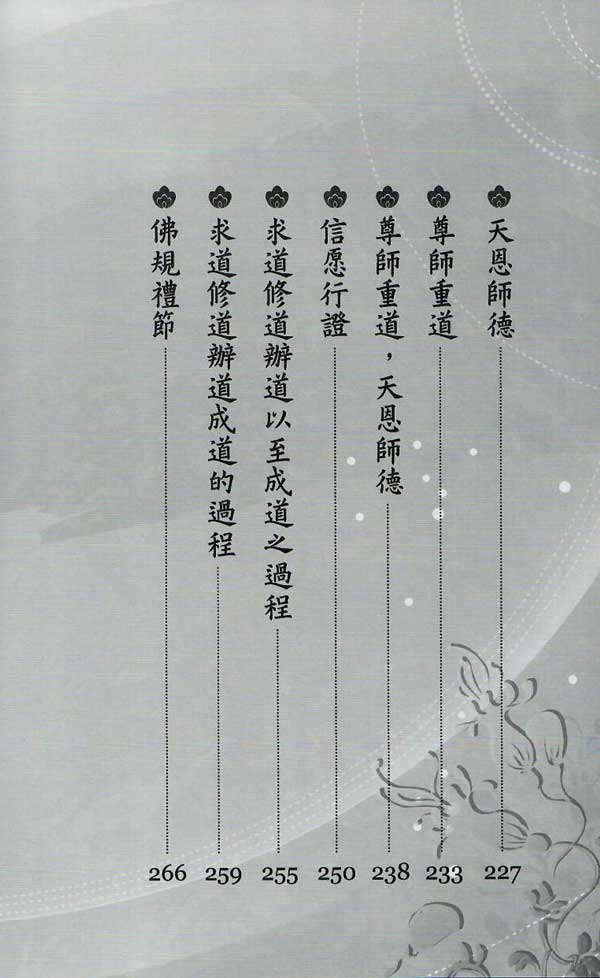 天恩師德 227
尊師重道 233
尊師重道，天恩師德 238
信愿行證 250
求道修道辦道以至成道之過程 255
求道修道辦道成道的過程 259
佛規禮節 266